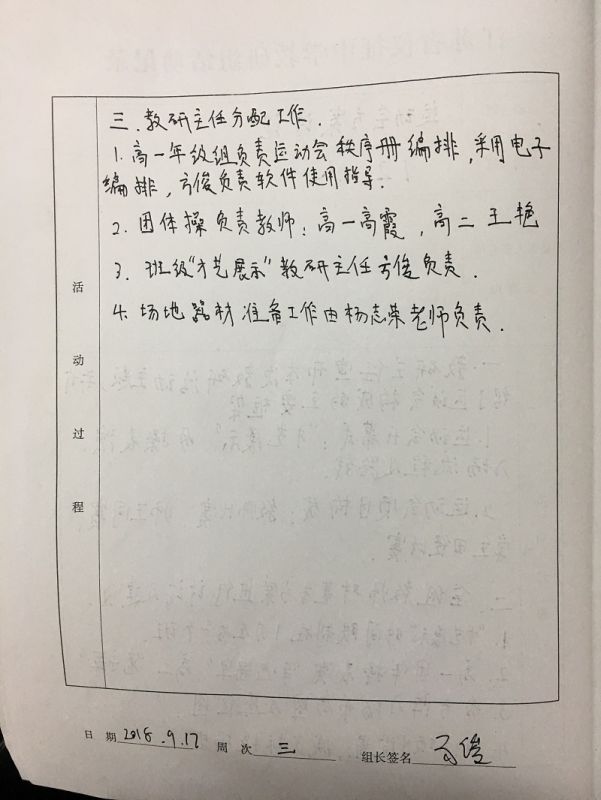 三、教研主任分配工作.
1. 高一年级组负责运动会秩序册编排,采用电子
编排,方俊负责软件使用指导.
2. 团体操负责教师:高一高霞,高二王艳
3. 班级“才艺展示”教研主任方俊负责.
4. 场地器材准备工作由杨志荣老师负责.
活
动
过
程
日 期 2018.9.17 周 次 三 组长签名 方俊